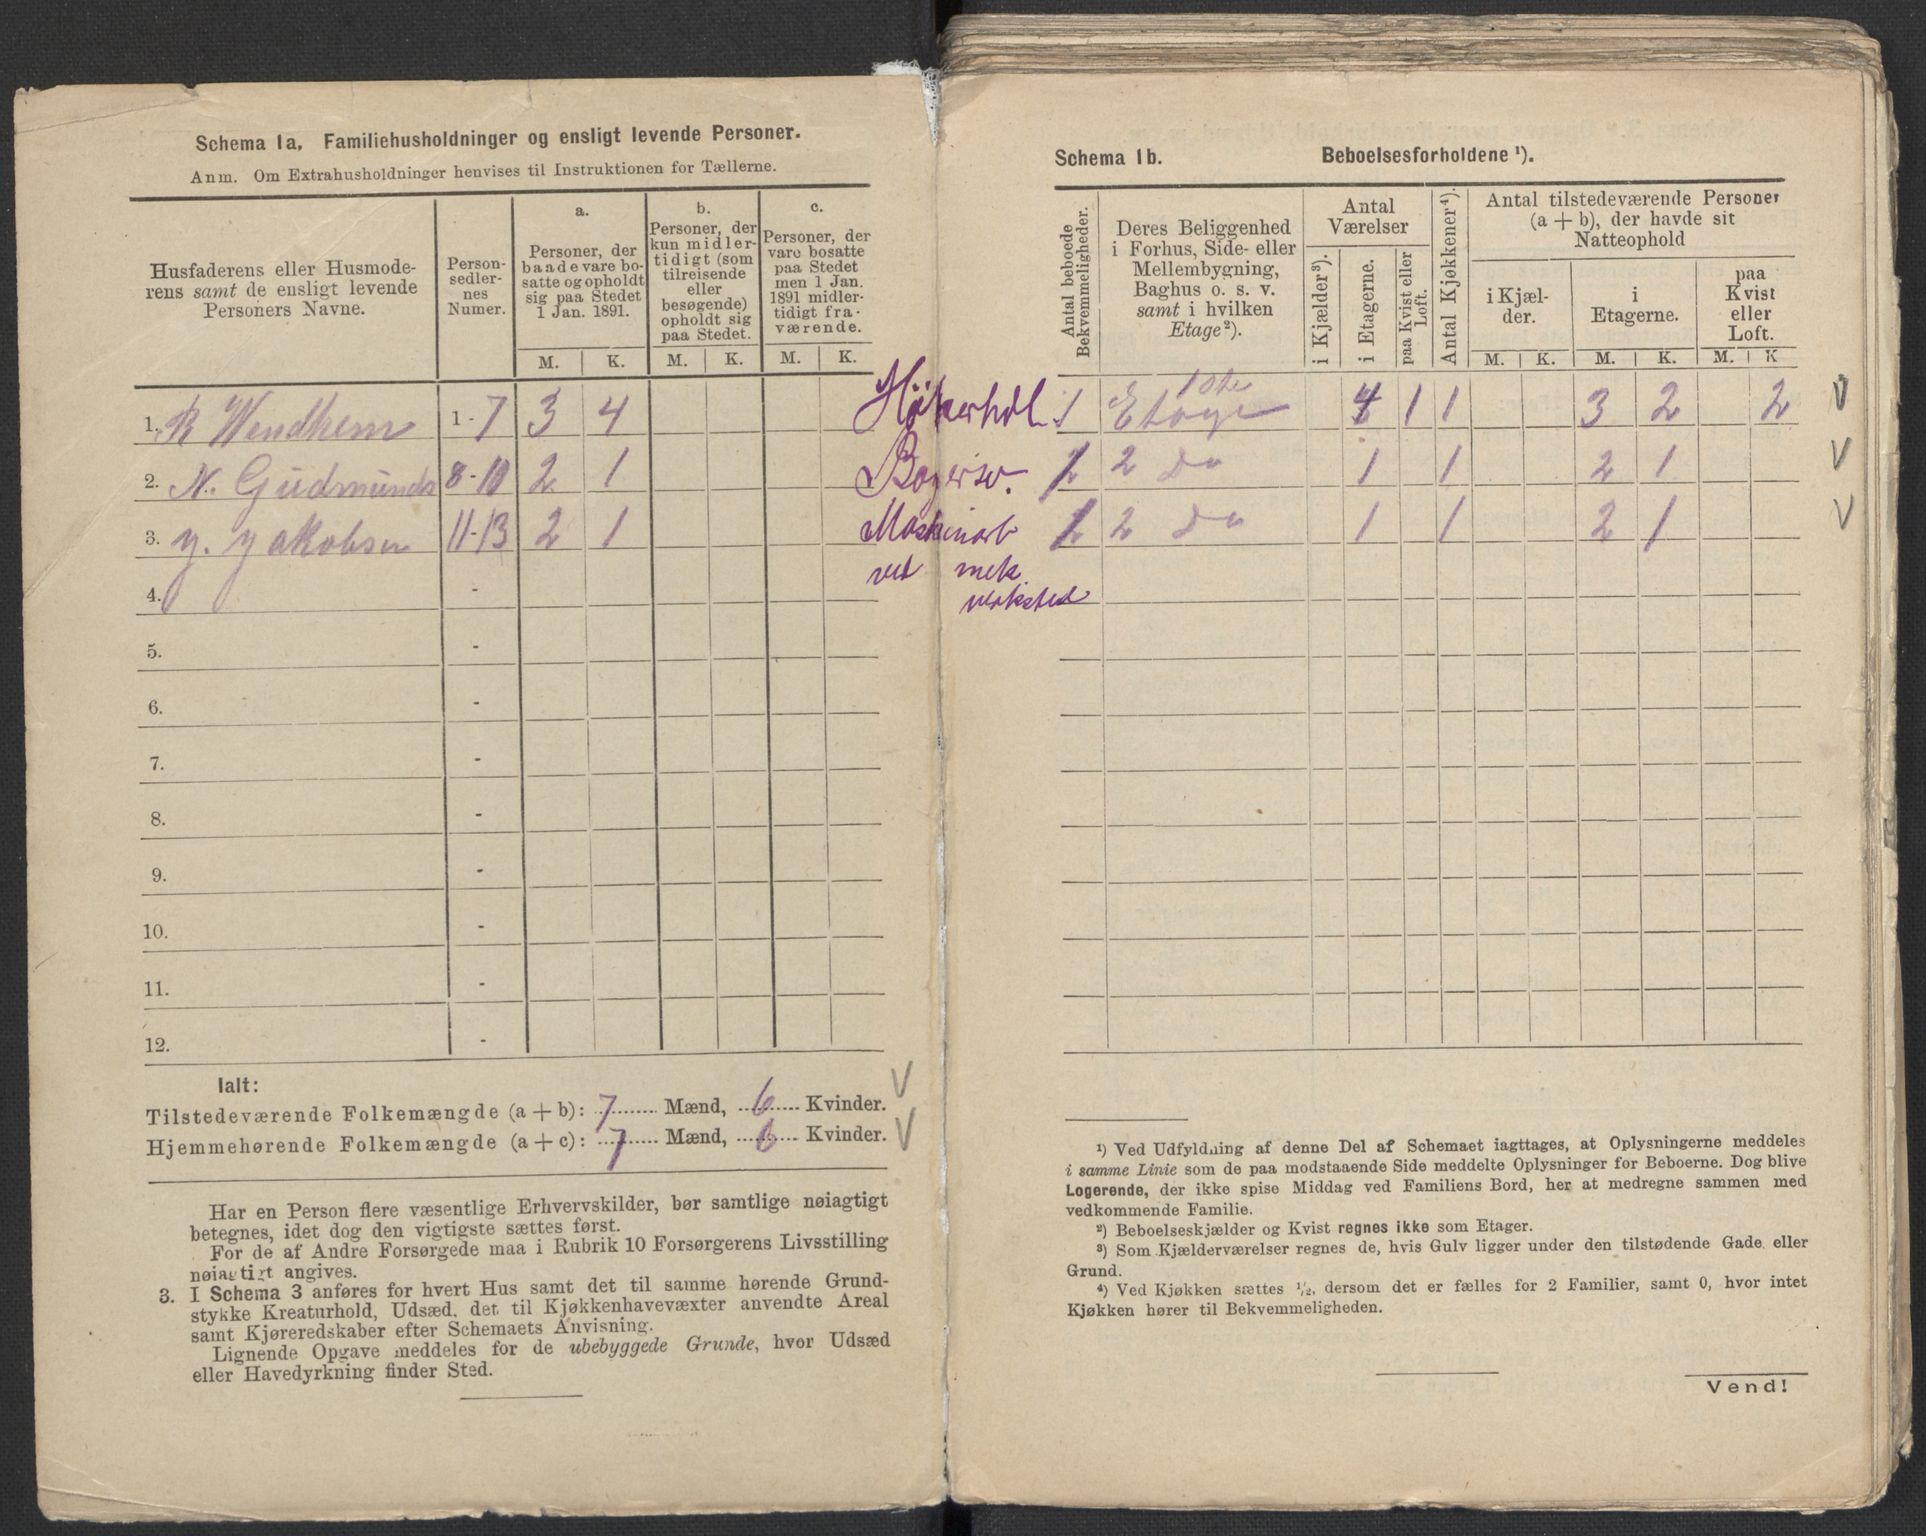 Schema 1a. Familiehusholdninger og ensligt levende Personer.
Anm. Om Extrahusholdninger henvises til Instruktionen for Tællerne.
Husfaderens eller Husmode-
rens samt de ensligt levende
Personers Navne.
Person-
sedler-
nes
Numer.
a.
Personer, der
baade vare bo-
satte og opholdt
sig paa Stedet
1 Jan. 1891.
b.
Personer, der
kun midler-
tidigt (som
tilreisende
eller
besøgende)
opholdt sig
paa Stedet.
c.
Personer, der
vare bosatte
paa Stedet
men 1 Jan.
1891 midler-
tidigt fra-
værende.
M. K. M. K. M. K.
1. R Wendhem 1-7 3 4
2. N. Gudmunds 8-10 2 1
3. J. Jakobsen 11-13 2 1
4. -
5. -
6. -
7. -
8. -
9. -
10. -
11. -
12. -
Ialt:
Tilstedeværende Folkemængde (a + b): 7 Mænd, 6 Kvinder. V
Hjemmehørende Folkemængde (a + c): 7 Mænd, 6 Kvinder. V
Har en Person flere væsentlige Erhvervskilder, bør samtlige nøiagtigt
betegnes, idet dog den vigtigste sættes først.
For de af Andre Forsørgede maa i Rubrik 10 Forsørgerens Livsstilling
nøiagtigt angives.
3. I Schema 3 anføres for hvert Hus samt det til samme hørende Grund-
stykke Kreaturhold, Udsæd, det til Kjøkkenhavevæxter anvendte Areal
samt Kjøreredskaber efter Schemaets Anvisning.
Lignende Opgave meddeles for de ubebyggede Grunde, hvor Udsæd
eller Havedyrkning finder Sted.
Schema 1b. Beboelsesforholdene ¹).
Antal beboede
Bekvemmeligheder.
Deres Beliggenhed
i Forhus, Side- eller
Mellembygning,
Baghus o. s. v.
samt i hvilken
Etage ²).
Antal
Værelser
i Kjælder ³).
i Etagerne.
paa Kvist eller
Loft.
Antal Kjøkkener ⁴).
Antal tilstedeværende Personer
(a + b), der havde sit
Natteophold
i Kjæl-
der.
i
Etagerne.
paa
Kvist
eller
Loft.
M. K. M. K. M. K
Høkerhdl. 1 1ste Etage 4 1 1 3 2 2 V
2 Do 1 1 2 1 V
Maskinarb 2 Do 1 1 2 1 V
ved mek.
verksted
¹) Ved Udfyldning af denne Del af Schemaet iagttages, at Oplysningerne meddeles
i samme Linie som de paa modstaaende Side meddelte Oplysninger for Beboerne. Dog blive
Logerende, der ikke spise Middag ved Familiens Bord, her at medregne sammen med
vedkommende Familie.
²) Beboelseskjælder og Kvist regnes ikke som Etager.
³) Som Kjælderværelser regnes de, hvis Gulv ligger under den tilstødende Gade eller
Grund.
⁴) Ved Kjøkken sættes ½, dersom det er fælles for 2 Familier, samt 0, hvor intet
Kjøkken hører til Bekvemmeligheden.
Vend!